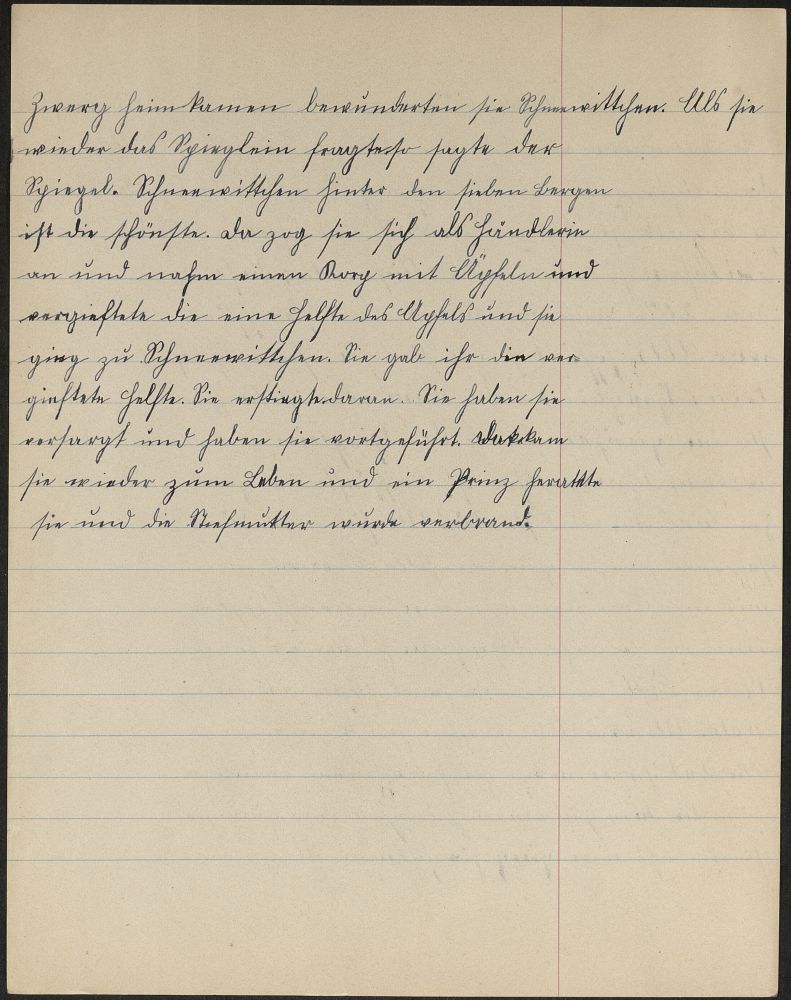 Zwerg heim kamen bewunderten sie Schneewittchen. Als sie
wieder das Spieglein fragte so sagte der
Spiegel. Schneewittchen hinter den sieben Bergen
ist die schönste. Da zog sie sich als Händlerin
an und nahm einen Korg mit Äpfeln und
vergieftete die eine Helfte des Apfels und sie
ging zu Schneewittchen. Sie gab ihr die ver-
gieftete Helfte. Sie erstiegte daran. Sie haben sie
versargt und haben sie vortgeführt. kam
sie wieder zum Leben und ein Prinz heratete
sie und die Stiefmutter wurde verbrand.